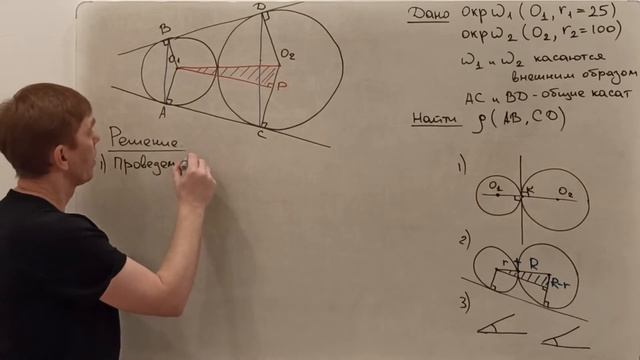 Дано окр ω₁ (O₁, r₁=25)
окр ω₂ (O₂, r₂=100)
ω₁ и ω₂ касаются
внешним образом
AC и BD - общие касат
Найти ρ(AB, CD)
B
D
O₁
O₂
P
A
C
Решение
1) Проведем
1)
O₁
K
O₂
2)
r
R
R-r
3)